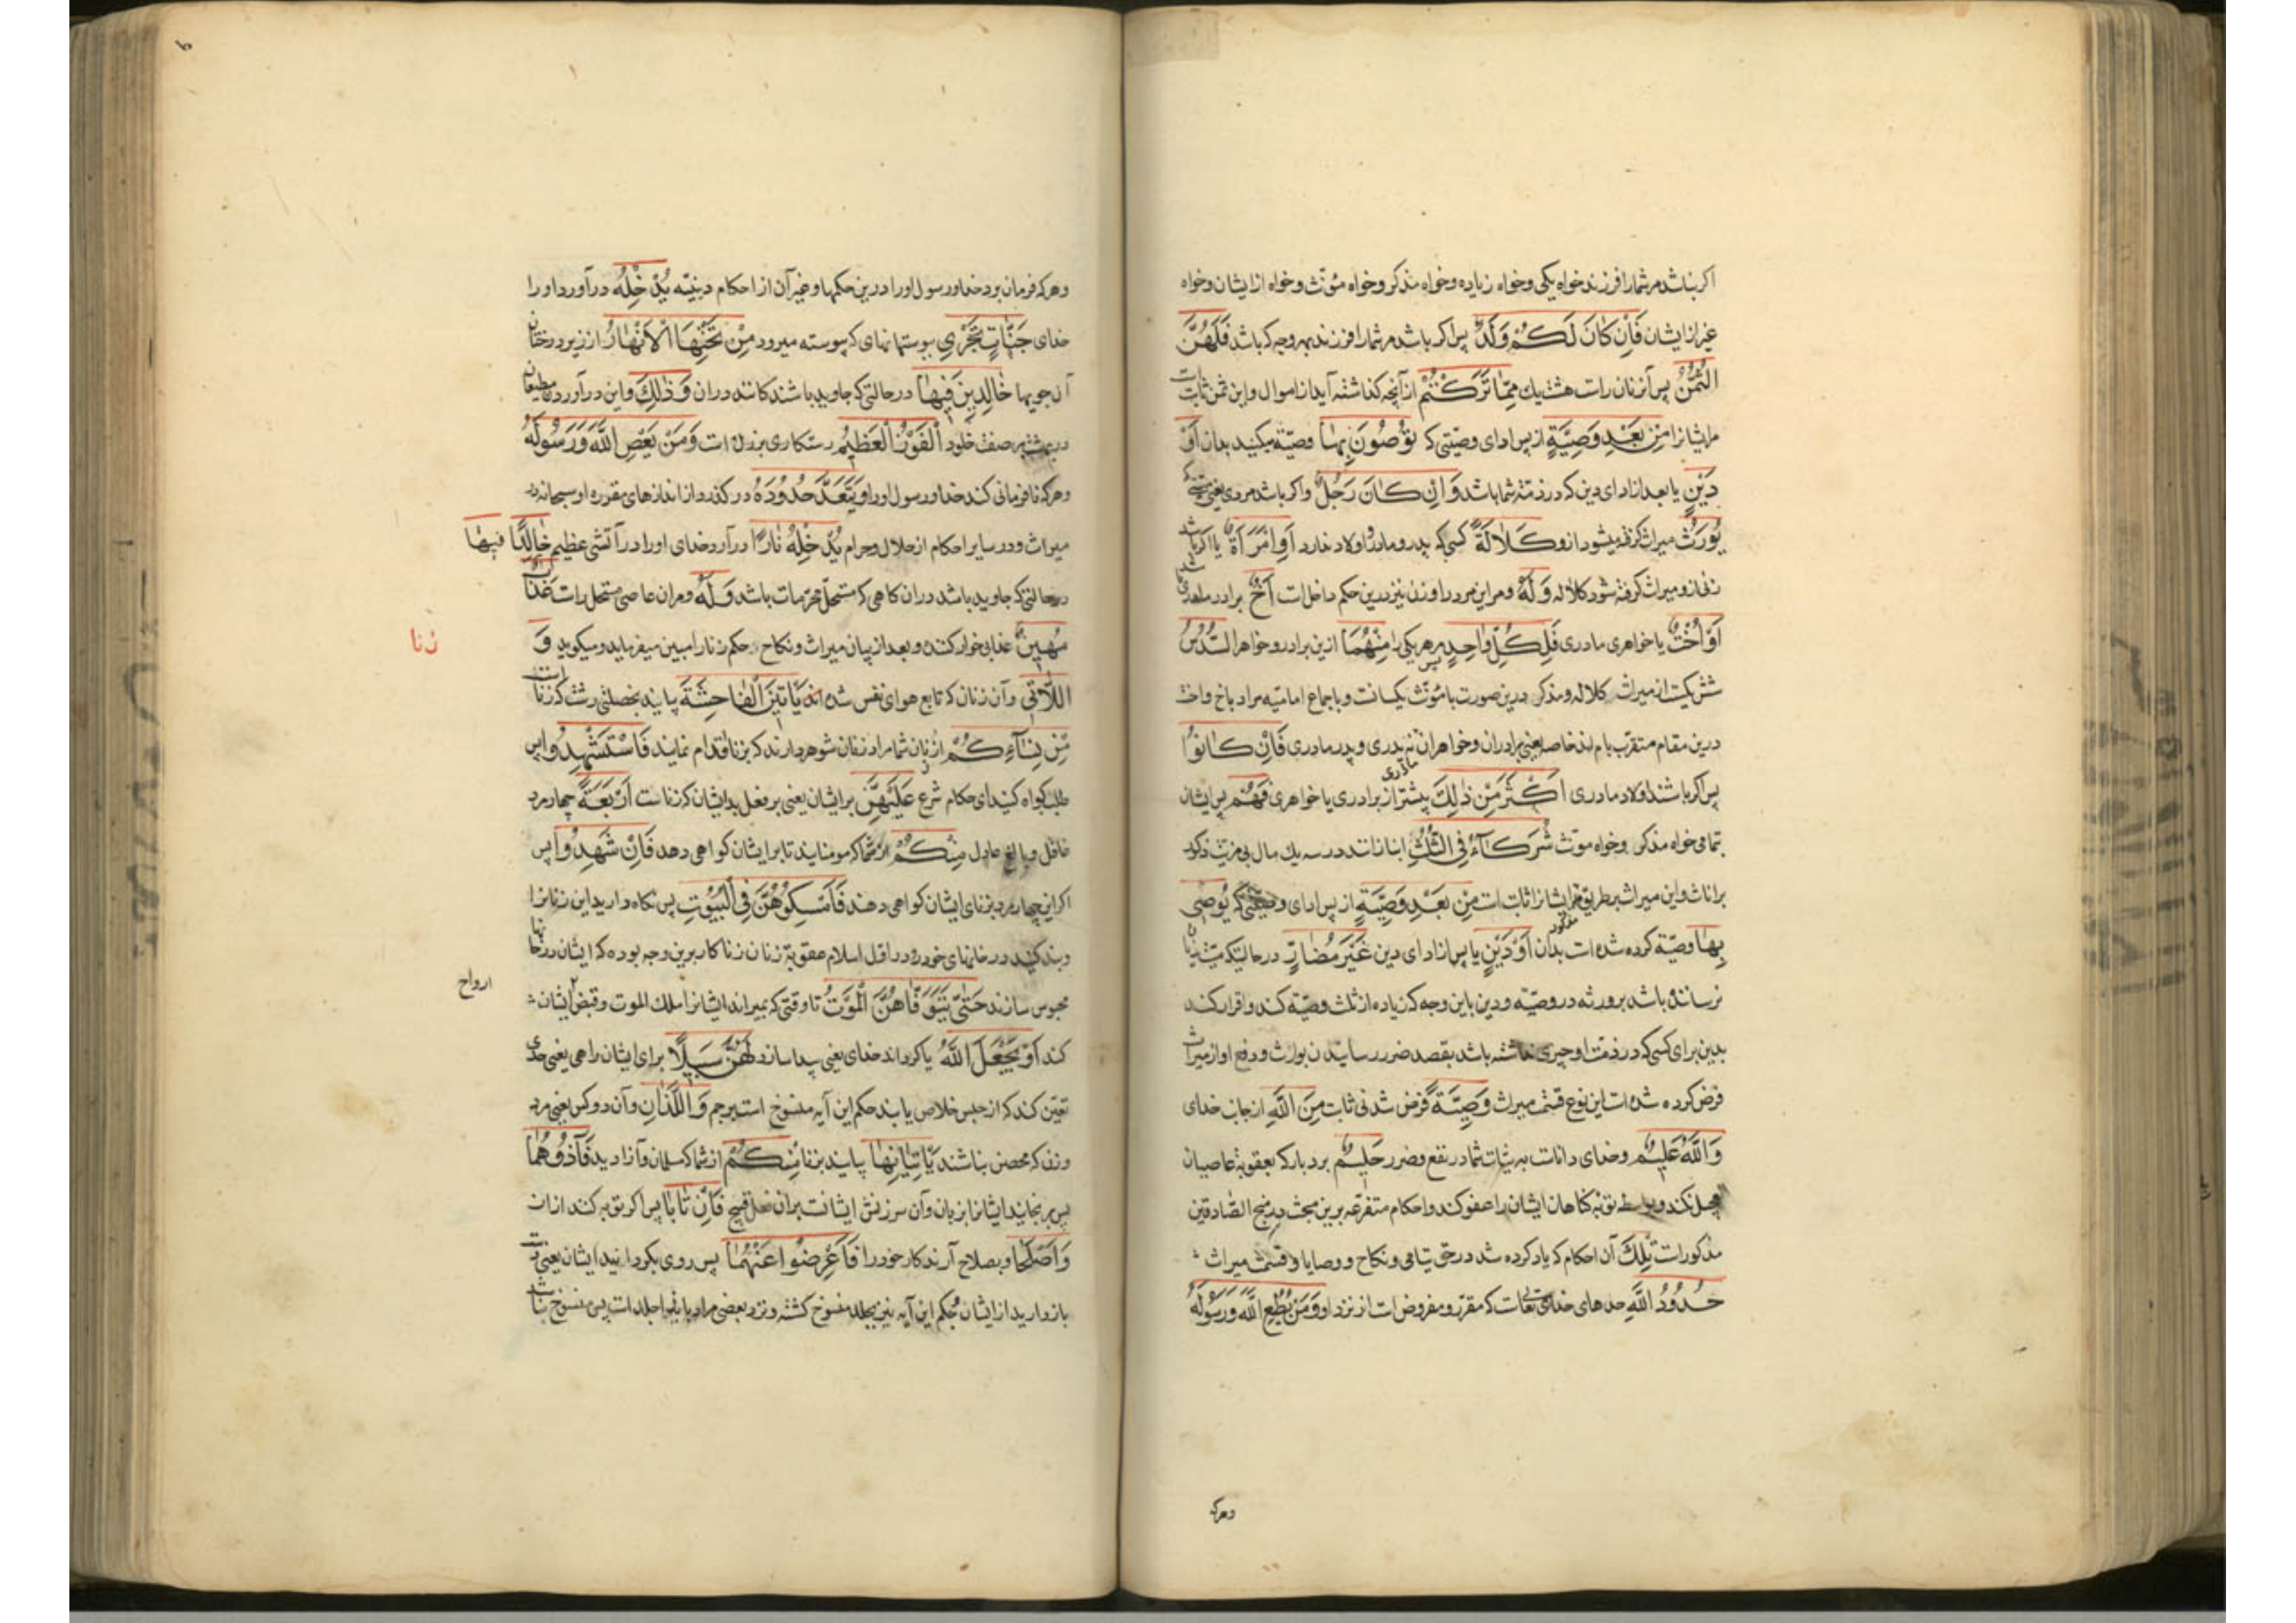 اکر نباشد مر شمارا فرزند خواه یکی و خواه زیاده و خواه مذکر و خواه مؤنّث و خواه از ایشان و خواه
غیر از ایشان فَاِنْ کٰانَ لَکُمْ وَلَدٌ پس اکر باشد مر شمارا فرزند بهر وجه که باشد فَلَهُنَّ
الثُّمُنُ پس آن زنان راست هشت یك مِمّٰا تَرَکْتُمْ از آنچه کذاشته آید از اموال و این ثمن ثابت است
مر ایشانرا مِنْ بَعْدِ وَصِیَّةٍ از پس ادای وصیّتی که تُوصُونَ بِهٰا وصیّة میکنید بدان اَوْ
دَیْنٍ یا بعد از ادای دین که در ذمّه شما باشد وَ اِنْ کٰانَ رَجُلٌ و اکر باشد مردی یعنی
یُورَثُ میراث کرفته میشود ازو کَلٰالَةً کسی که پدر و مادر و اولاد ندارد اَوِ امْرَاَةٌ یا اکر باشد
زنی ازو میراث کرفته شود کلاله وَ لَهُ و مر این مرد را و زن نیز درین حکم داخل است اَخٌ برادر مادری
اَوْ اُخْتٌ یا خواهری مادری فَلِکُلِّ وٰاحِدٍ پس هر یکی را مِنْهُمٰا ازین برادر و خواهر السُّدُسُ
شش یکست از میراث کلاله و مذکر درین صورت با مؤنّث یکسانست و باجماع امامیّه مراد باخ و اخت
درین مقام متقرب بام‌اند خاصه یعنی برادران و خواهران نه پدری و پدر مادری فَاِنْ کٰانُوا
پس اکر باشند اولاد مادری اَکْثَرَ مِنْ ذٰلِكَ بیشتر از برادری یا خواهری مادری فَهُمْ پس ایشان
تمامی خواه مذکر و خواه مونث شُرَکٰآءُ فِی الثُّلُثِ انبازانند در سه یك مال بی مزیت ذکور
بر اناث و این میراث بر طریق مذکور مر ایشانرا ثابت است مِنْ بَعْدِ وَصِیَّةٍ از پس ادای وصیّتی که یُوصٰی
بِهٰا وصیّة کرده شده است بدان اَوْ دَیْنٍ یا پس از ادای دین غَیْرَ مُضٰارٍّ در حالتیکه میّت زیان
نرساننده باشد بر ورثه در وصیّه و دین باین وجه که زیاده از ثلث وصیّة کند و اقرار کند
بدین برای کسی که در ذمت او چیزی نداشته باشد بقصد ضرر رسانیدن بوارث و دفع او از میراث
فرض کرده شده است این نوع قسمت میراث وَصِیَّةً فرض شدنی ثابت مِنَ اللّٰهِ از جانب خدای
وَ اللّٰهُ عَلِیمٌ و خدای داناست به نیّات شما در نفع و ضرر حَلِیمٌ بردبار که بعقوبة عاصیان
عجل نکند و بواسطه توبه کناهان ایشان را عفو کند و احکام متفرعه برین مبحث در منهج الصّادقین
مذکورست تِلْكَ آن احکام که یاد کرده شد در حق یتامی و نکاح و وصایا و قسمت میراث
حُدُودُ اللّٰهِ حدهای خدای تعالی است که مقرر و مفروض است از نزد او وَ مَنْ یُطِعِ اللّٰهَ وَ رَسُولَهُ
و هر که
و هر که فرمان برد خدا و رسول او را درین حکمها و غیر آن از احکام دینیّه یُدْخِلْهُ درآورد او را
خدای جَنّٰاتٍ تَجْرِی ببوستانهای که پیوسته میرود مِنْ تَحْتِهَا الْاَنْهٰارُ از زیر درختان
آن جویها خٰالِدِینَ فِیهٰا در حالتی که جاوید باشندکانند دران وَ ذٰلِكَ و این درآوردن مطیعان
در بهشت بر صفت خلود اَلْفَوْزُ الْعَظِیمُ رستکاری بزرك است وَ مَنْ یَعْصِ اللّٰهَ وَ رَسُولَهُ
و هر که نافرمانی کند خدا و رسول او را وَ یَتَعَدَّ حُدُودَهُ در کذرد از اندازهای مقرره او سبحانه در
میراث و در سایر احکام از حلال و حرام یُدْخِلْهُ نٰارًا درآرد خدای او را در آتشی عظیم خٰالِدًا فِیهٰا
در حالتی که جاوید باشد دران کاهی که مستحلّ محرّمات باشد وَ لَهُ و مر آن عاصی مستحل راست عَذٰابٌ
مُهِینٌ عذابی خوار کننده و بعد از بیان میراث و نکاح حکم زنا را مبین میفرماید و میکوید وَ
زنا
اللّٰاتِی و آن زنان که تابع هوای نفس شده اند یَاْتِینَ الْفٰاحِشَةَ بیایند بخصلتی زشت که زناست
مِنْ نِسٰآءِکُمْ از زنان شما مراد زنان شوهردارند که بزنا اقدام نمایند فَاسْتَشْهِدُوا پس
طلب کواه کنید ای حکام شرع عَلَیْهِنَّ بر ایشان یعنی بر فعل بد ایشان که زناست اَرْبَعَةً چهار مرد
عاقل و بالغ عادل مِنْکُمْ از شما که مومنانید تا بر ایشان کواهی دهد فَاِنْ شَهِدُوا پس
اکر این چهار مرد بزنای ایشان کواهی دهند فَاَمْسِکُوهُنَّ فِی الْبُیُوتِ پس نکاه دارید این زنانرا
و بند کنید در خانهای خود و در اول اسلام عقوبة زنان زناکار برین وجه بوده که ایشان در خانها
محبوس سازند حَتّٰی یَتَوَفّٰاهُنَّ الْمَوْتُ تا وقتی که بمیراند ایشانرا ملك الموت و قبض ارواح ایشان
کند اَوْ یَجْعَلَ اللّٰهُ یا کرداند خدای یعنی پیدا سازد لَهُنَّ سَبِیلًا برای ایشان راهی یعنی حدی
تعیّن کند که از حبس خلاص یابند حکم این آیه منسوخ است برجم وَ اللَّذٰانِ و آن دو کس یعنی مرد
و زن که محصن نباشند یَاْتِیٰانِهٰا بیایند بزنا مِنْکُمْ از شما که مسلمان و آزادید فَاٰذُوهُمٰا
پس برنجانید ایشانرا بزبان و آن سرزنش ایشانست بران فعل قبیح فَاِنْ تٰابٰا پس اکر توبه کنند ازان
وَ اَصْلَحٰا و بصلاح آرند کار خود را فَاَعْرِضُوا عَنْهُمٰا پس روی بکردانید ایشان یعنی
باز دارید از ایشان حکم این آیه نیز بجلد منسوخ کشته و نزد بعضی مراد بایذا جلد است پس منسوخ نباشد